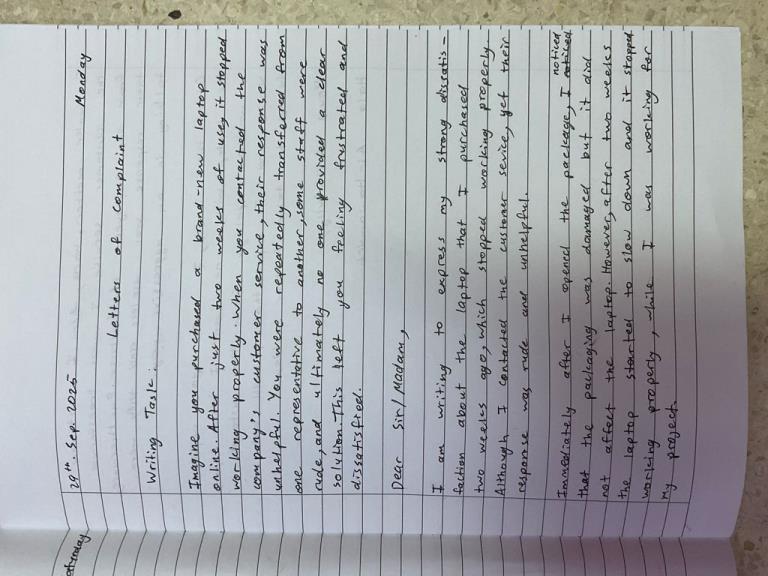 29th. Sep. 2025 Monday
Letters of complaint
Writing Task:
Imagine you purchased a brand-new laptop
online. After just two weeks of use, it stopped
working properly. When you contacted the
company's customer service, their response was
unhelpful. You were repeatedly transferred from
one representative to another, some staff were
rude, and ultimately no one provided a clear
solution. This left you feeling frustrated and
dissatisfied.
Dear Sir/Madam,
I am writing to express my strong dissatis-
faction about the laptop that I purchased
two weeks ago, which stopped working properly.
Although I contacted the customer sevice, yet their
response was rude and unhelpful.
Immediately after I opened the package, I noticed
that the packaging was damaged but it did
not affect the laptop. However, after two weeks
the laptop started to slow down and it stopped
working properly, while I was working for
my project.